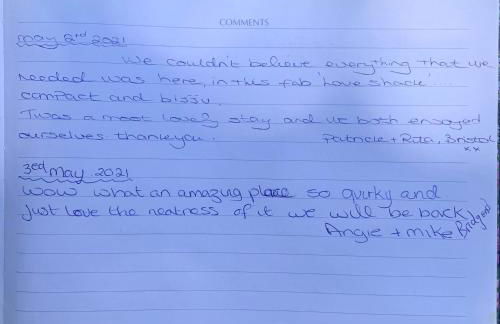 COMMENTS
May 2nd 2021
We couldn't believe everything that we
needed was here, in this fab 'love shack'....
compact and bijju.
Twas a most lovely stay and we both enjoyed
ourselves thankyou. Patricie + Rita, Bristol
xx
3rd May 2021
Wow what an amazing place so quirky and
Just love the neatness of it we will be back
Angie + mike